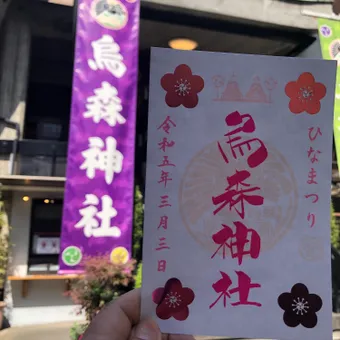 烏森神社
ひなまつり
烏森神社
令和五年三月三日